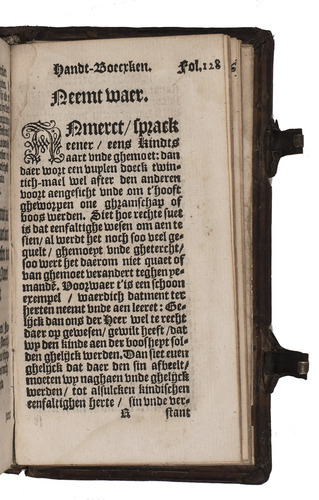 Handt-Boecxken. Fol.128
Neemt waer.
ANmerct / sprack
eener / eens kindts
aart vnde ghemoet: dan
daer wort een vuylen doeck twin
tich-mael wel after den anderen
voort aengesicht vnde om t'hooft
gheworpen one ghramschap of
boos werden. Siet hoe rechte suet
is dat eenfaltighe wesen om aen te
sien / al werdt het noch soo veel ge-
quelt / ghemoeyt vnde ghetereht /
soo wert het daerom niet quaet of
van ghemoet verandert teghen ye-
mande. Voorwaer t'is een schoon
exempel / waerdich datment ter
herten neemt vnde aen leeret: Ge-
lijck dan ons der Heer wel te recht
daer op gewesen / gewilt heeft / dat
wy den kinde aen der boosheyt sol-
den ghelijck werden. Dan siet euen
ghelijck dat daer den sin afbeelt /
moeten wy naghaen vnde ghelijck
werden / tot alsulcken kindischen
eenfaltighen herte / sin vnde ver-
K stant